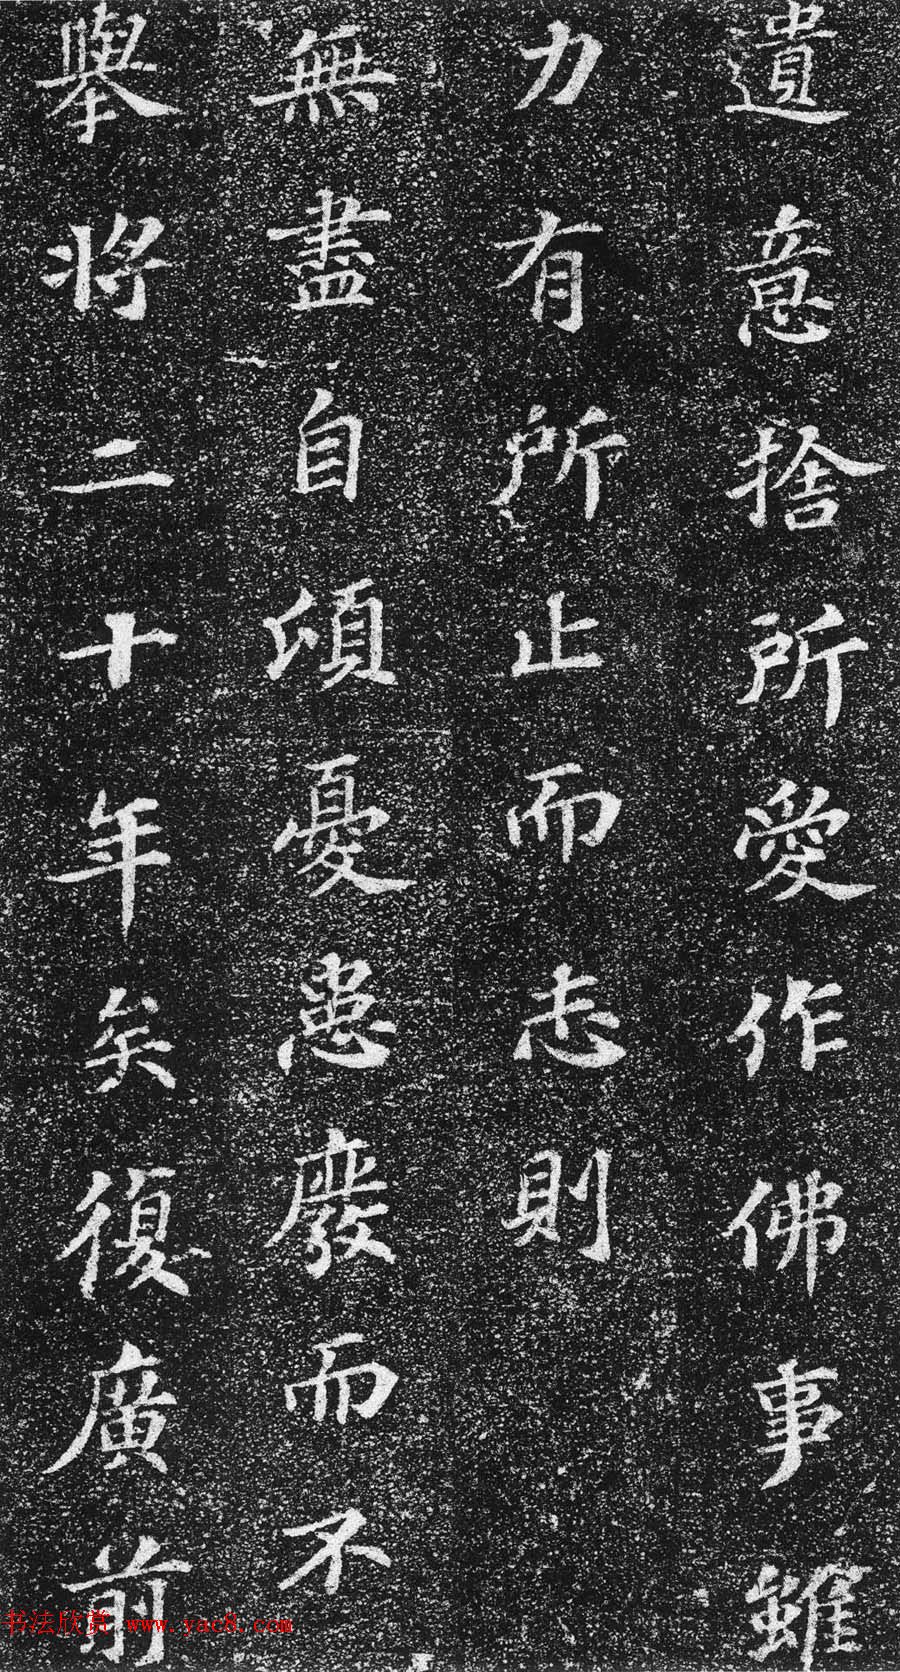 遺意捨所愛作佛事雖
力有所止而志則
無盡自頃憂患廢而不
舉將二十年矣復廣前
书法欣赏 www.yac8.com